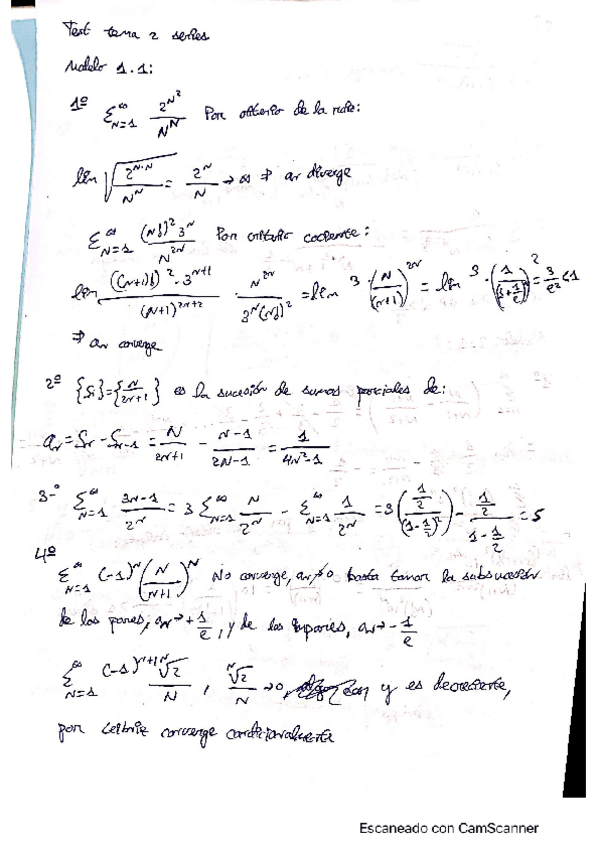 Test tema 2 series
Modelo 1.1:
1º Σ_{N=1}^{∞} 2^{N^2}/N^N Por criterio de la raíz:
lim √(2^{N·N}/N^N) = 2^N/N → ∞ ⇒ an diverge
Σ_{N=1}^{∞} (N!)^2 3^N/N^{2N} Por criterio cociente:
lim ((N+1)!)^2 · 3^{N+1}/(N+1)^{2N+2} · N^{2N}/3^N(N!)^2 = lim 3·(N/(N+1))^{2N} = lim 3·(1/(1+1/e))^2 = 3/e^2 < 1
⇒ an converge
2º {Si}={N/2N+1} es la sucesión de sumas parciales de:
an = Sn - Sn-1 = N/2N+1 - N-1/2N-1 = 1/4N^2-1
3-º Σ_{N=1}^{∞} 3N-1/2^N = 3 Σ_{N=1}^{∞} N/2^N - Σ_{N=1}^{∞} 1/2^N = 3((1/2)/(1-1/2)^2) - (1/2)/(1-1/2) = 5
4º
Σ_{N=1}^{∞} (-1)^N (N/N+1)^N No converge, an↛0 basta tomar la subsucesión
de los pares, an→+1/e, y de los impares, an→-1/e
Σ_{N=1}^{∞} (-1)^{N+1} ᴺ√2/N, ᴺ√2/N →0, y es decreciente,
por Leibniz converge condicionalmente
Escaneado con CamScanner